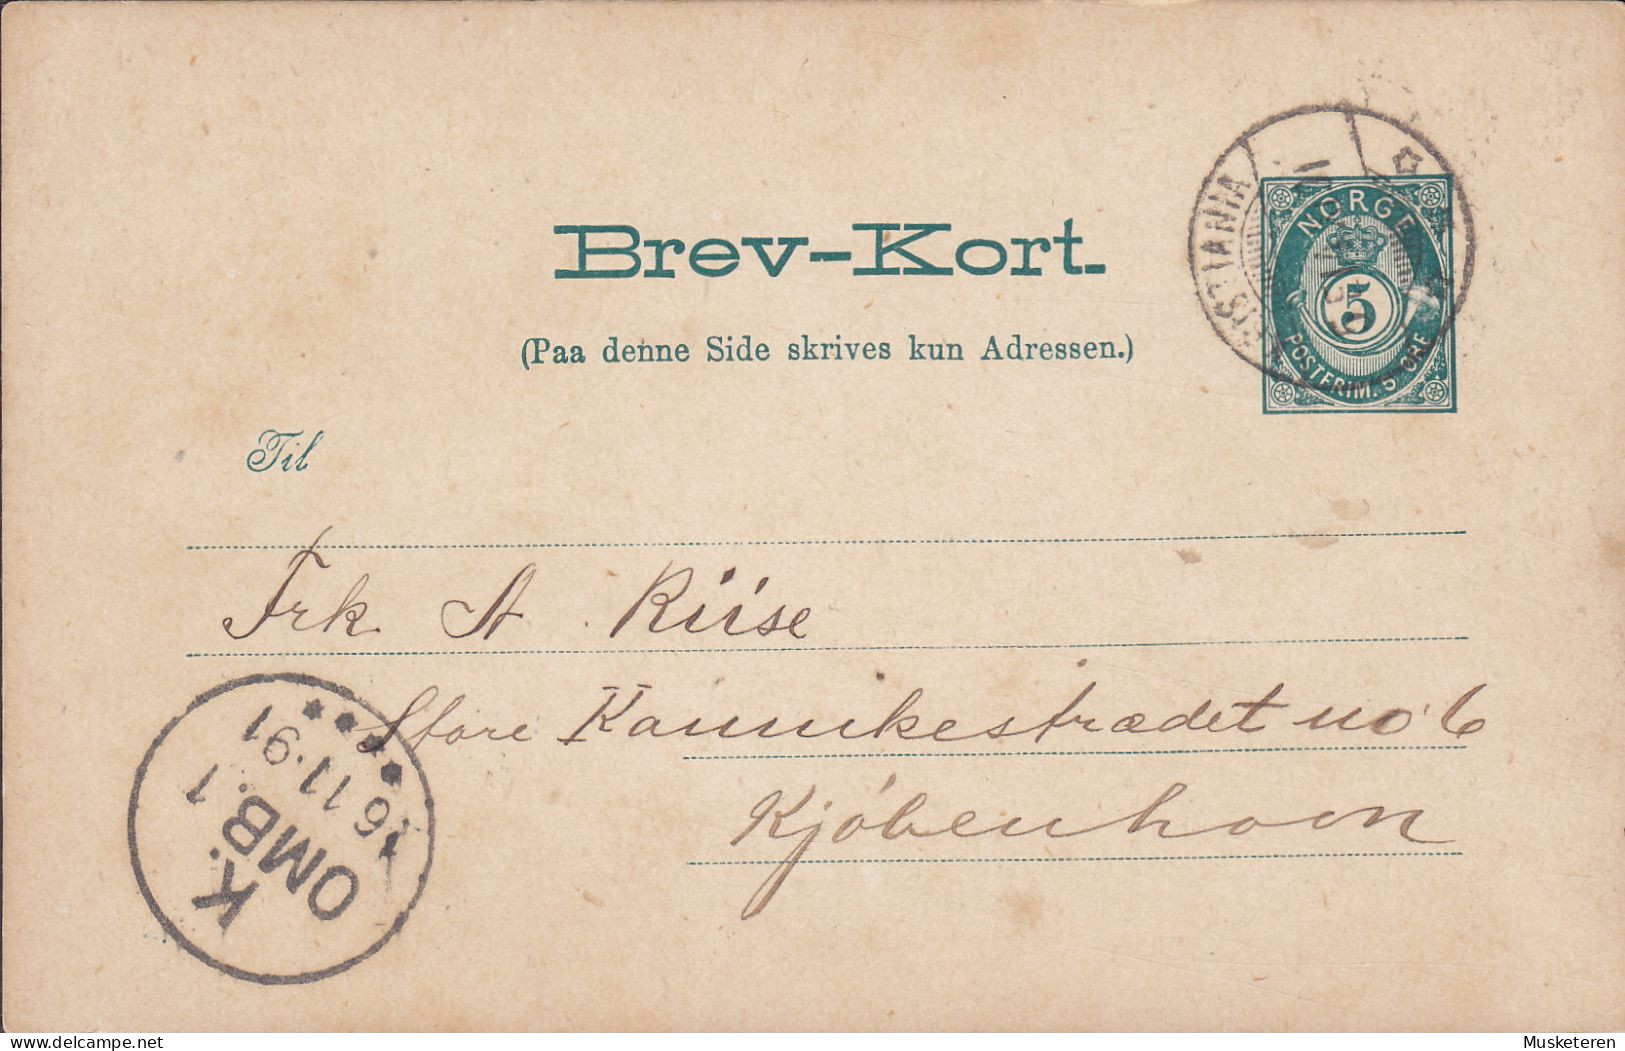 Brev-Kort.
(Paa denne Side skrives kun Adressen.)
NORGE
5
POSTFRIM. 5 ØRE
Til
Frk A Riise
Store Kannikestrædet no 6
Kjøbenhavn
K.
OMB. 1
16 11. 91
Musketeren